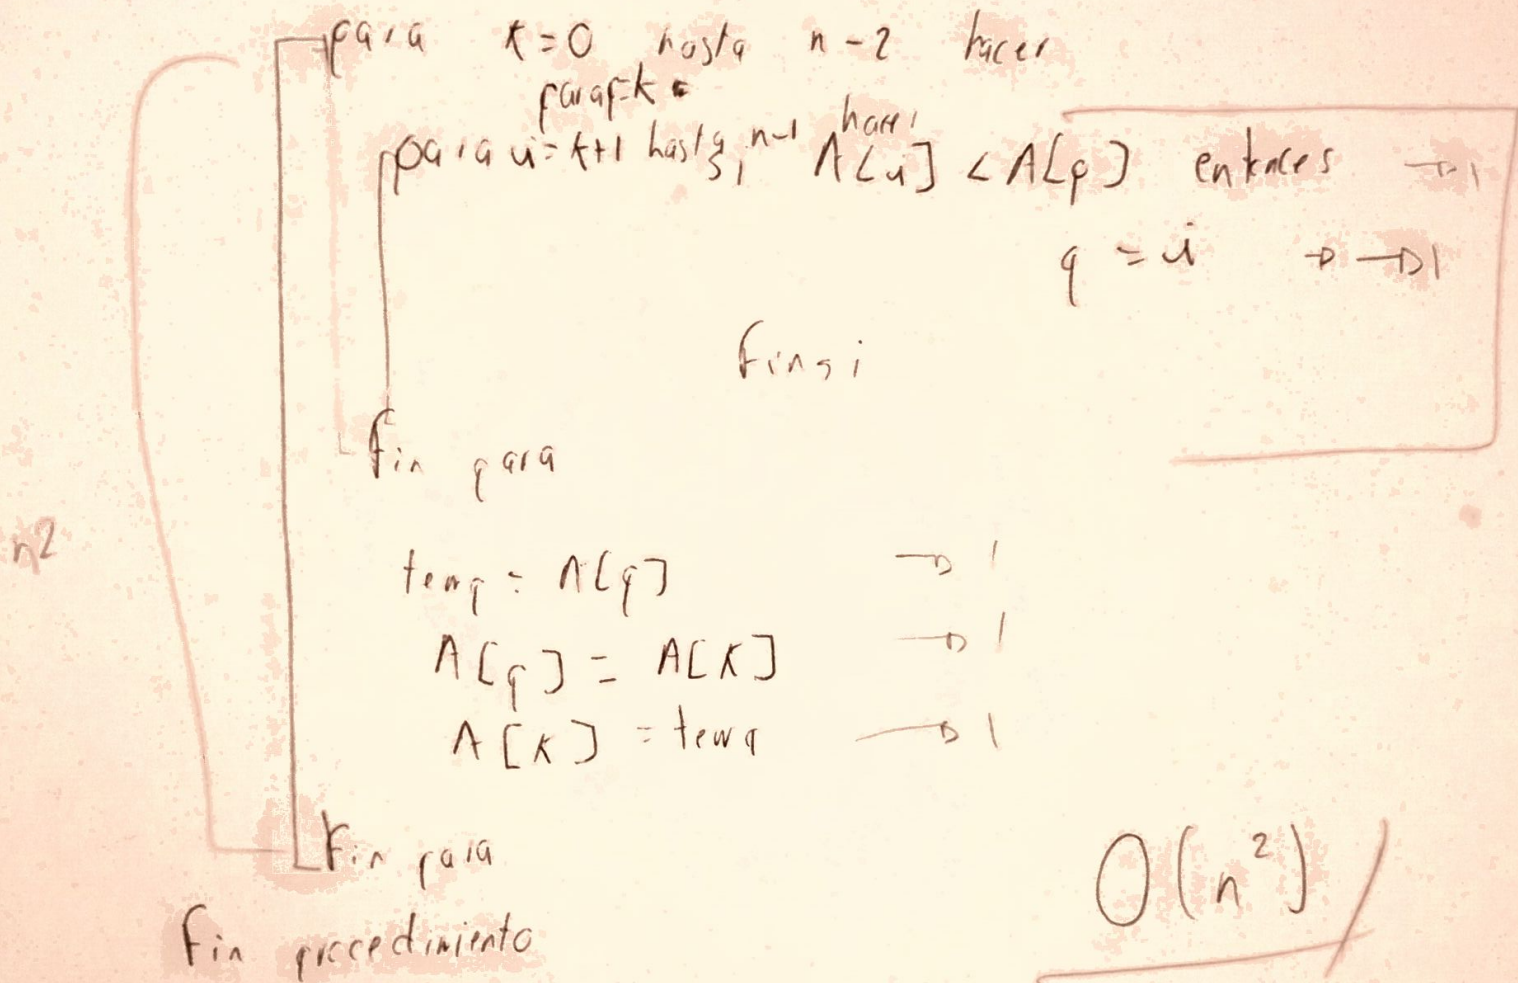 para k=0 hasta n-2 hacer
p=k
para i=k+1 hasta n-1
si A[i] < A[p] entonces →1
p = i → →1
finsi
fin para
n2
temp = A[p] → 1
A[p] = A[K] → 1
A[K] = temp → 1
Fin para
O(n²)
Fin procedimiento